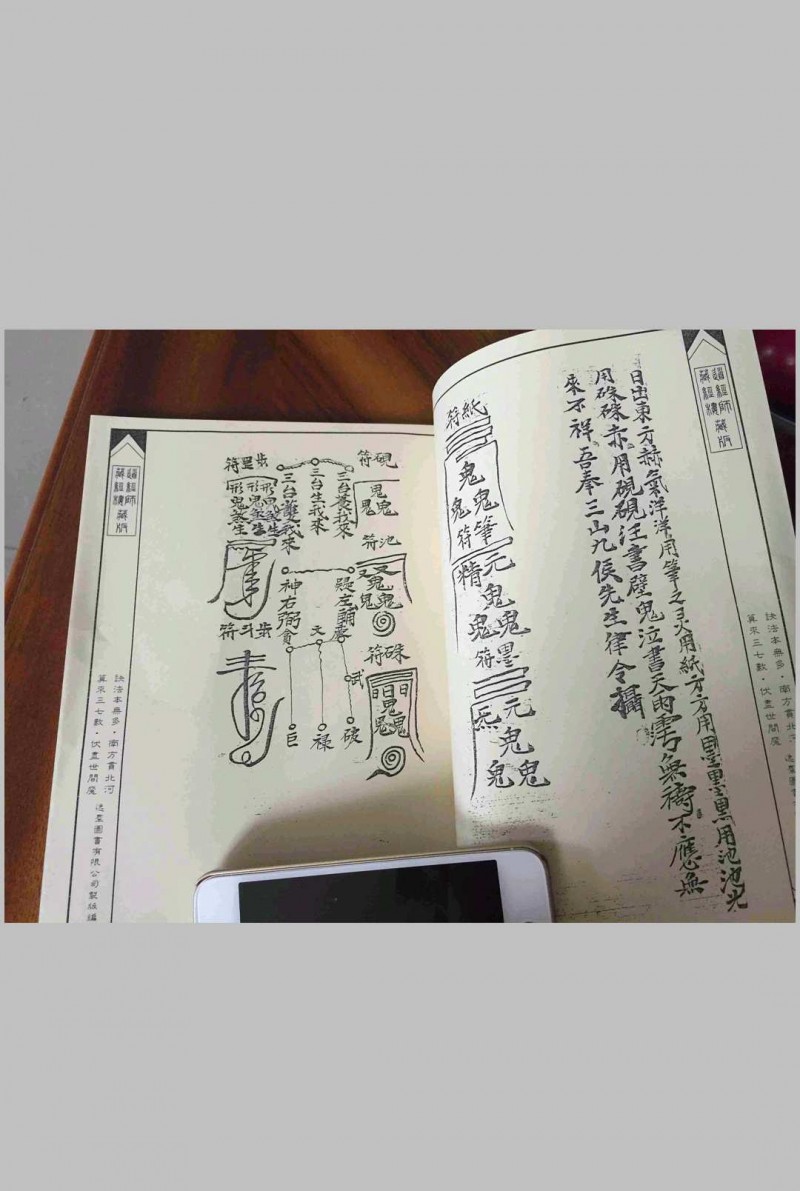 日出東方赫氣洋洋用筆之用紙方方用墨墨黑用池池光
用硃硃赤用硯硯汪書壁鬼泣書天雨無禱不應無
來不祥吾奉三山九侯先生律令攝
紙符
鬼
鬼鬼
筆符
元
精
鬼
鬼鬼
墨符
元
炁
鬼
鬼鬼
硯符
鬼
池符
硃符
三台生我來
三台養我來
三台護我來
步罡符
步斗符
神右弼
疑左輔
貪
文
廉
武
巨
祿
破
藏經樓藏版
訣法本無多·南方賣北河
算來三七數·伏盡世間魔
逸羣圖書有限公司製版
藏經樓藏版
訣法本無多·南方賣北河
算來三七數·伏盡世間魔